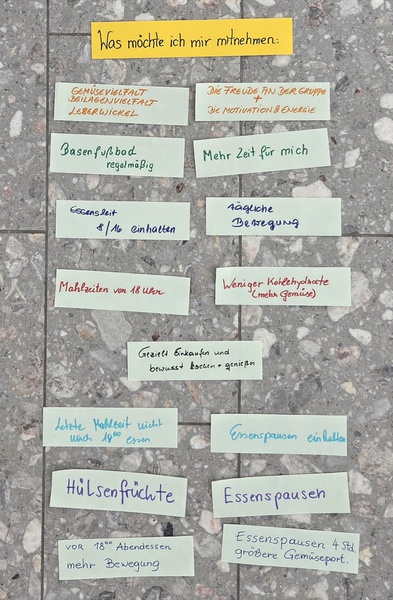 Was möchte ich mir mitnehmen:
GEMÜSEVIELFALT
BEILAGENVIELFALT
LEBERWICKEL
DIE FREUDE AN DER GRUPPE
+
DIE MOTIVATION & ENERGIE
Basenfußbad
regelmäßig
Mehr Zeit für mich
Essenszeit
8/16 einhalten
tägliche
Bewegung
Mahlzeiten vor 18 Uhr
Weniger Kohlehydrate
(mehr Gemüse)
Gezielt Einkaufen und
bewusst kochen + genießen
Letzte Mahlzeit nicht
nach 18⁰⁰ essen
Essenspausen einhalten
Hülsenfrüchte
Essenspausen
vor 18⁰⁰ Abendessen
mehr Bewegung
Essenspausen 4 Std.
größere Gemüseport.